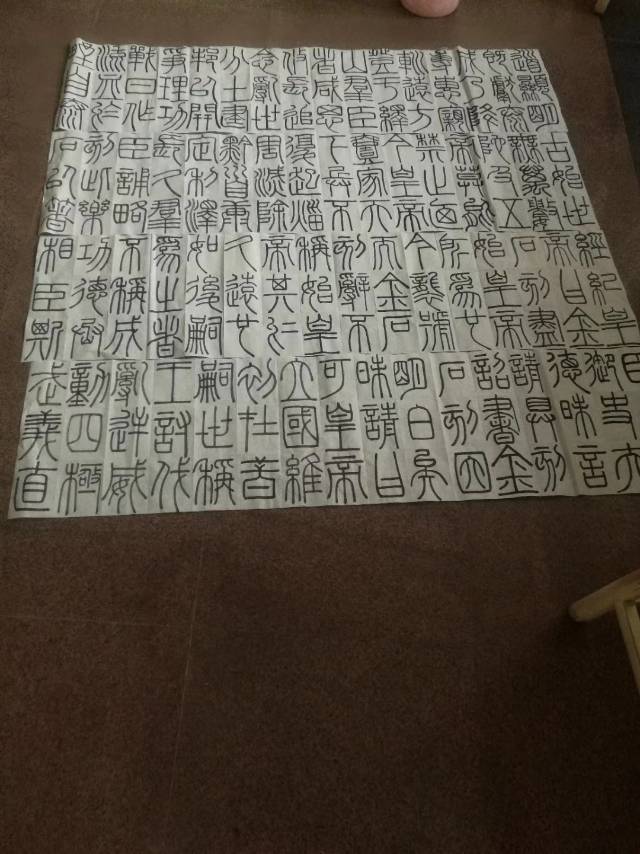 道顯明
既獻泰
成乃降
專惠親
巡遠方
登于繹
山羣臣
者咸思
攸長追
念亂世
分土建
邦以開
爭理功
戰日作
流血於
野自泰
古始世
無萬數
陀及五
帝莫能
禁止廼
今皇帝
壹家天
下兵不
復起災
害滅除
黔首康
定利澤
長久羣
臣誦略
刻此樂
石以著
經紀皇
帝曰金
石刻盡
始皇帝
所為也
今襲號
而金石
刻辭不
稱始皇
帝其於
久遠也
如後嗣
為之者
不稱成
功德
相臣斯
御史
德昧言
請具刻
詔書金
石刻因
明白矣
昧請曰
可皇帝
立國維
初在昔
嗣世稱
王討伐
亂逆威
動四極
武義直